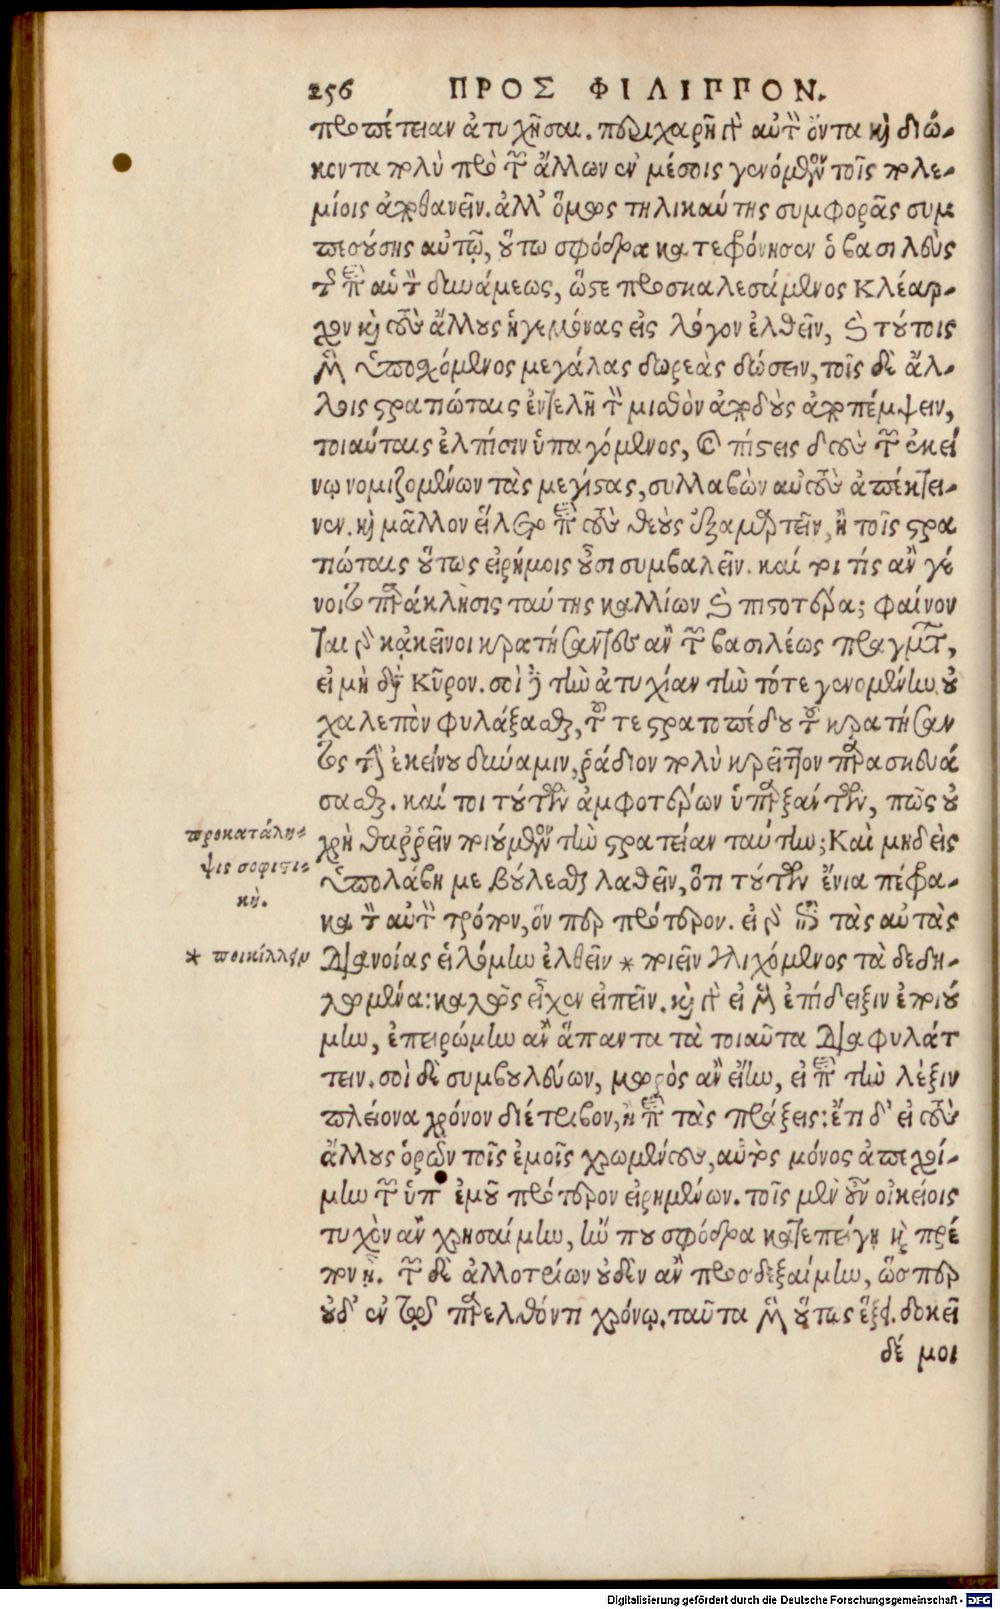 256 ΠΡΟΣ ΦΙΛΙΠΠΟΝ.
προπέτειαν ἀτυχῆσαι. περιχαρῆ γὰρ αὐτὸν ὄντα καὶ διώ-
κοντα πολὺ πρὸ τῶν ἄλλων ἐν μέσοις γενόμενον τοῖς πολε-
μίοις ἀποθανεῖν. ἀλλ' ὅμως τηλικαύτης συμφορᾶς συμ
πεσούσης αὐτῷ, οὕτω σφόδρα κατεφρόνησεν ὁ βασιλεὺς
τῆς περὶ αὑτὸν δυνάμεως, ὥστε προσκαλεσάμενος Κλέαρ-
χον καὶ τοὺς ἄλλους ἡγεμόνας εἰς λόγον ἐλθεῖν, καὶ τούτοις
μὲν ὑποσχόμενος μεγάλας δωρεὰς δώσειν, τοῖς δὲ ἄλ-
λοις στρατιώταις ἐντελῆ τὸν μισθὸν ἀποδοὺς ἀποπέμψειν,
τοιαύταις ἐλπίσιν ὑπαγόμενος, καὶ πίστεις δοὺς τῶν ἐκεί
νῳ νομιζομένων τὰς μεγίστας, συλλαβὼν αὐτοὺς ἀπέκτει-
νεν. καὶ μᾶλλον εἵλετο περὶ τοὺς θεοὺς ἐξαμαρτεῖν, ἢ τοῖς στρα
τιώταις οὕτως ἐρήμοις οὖσι συμβαλεῖν. καί τοι τίς ἂν γέ
νοιτο παράκλησις ταύτης καλλίων καὶ πιστοτέρα; φαίνον
ται γὰρ κἀκεῖνοι κρατήσαντες ἂν τῶν βασιλέως πραγμάτων,
εἰ μὴ διὰ Κῦρον. σοὶ δὲ τὴν ἀτυχίαν τὴν τότε γενομένην οὐ
χαλεπὸν φυλάξασθαι, τοῦ τε στρατοπέδου τοῦ κρατήσαν
τος τὴν ἐκείνου δύναμιν, ῥᾴδιον πολὺ κρεῖττον παρασκευά
σασθαι. καί τοι τούτων ἀμφοτέρων ὑπαρξάντων, πῶς οὐ
χρὴ θαῤῥεῖν ποιούμενον τὴν στρατείαν ταύτην; Καὶ μηδεὶς
ὑπολάβῃ με βούλεσθαι λαθεῖν, ὅτι τούτων ἔνια πέφρα-
κα τὸν αὐτὸν τρόπον, ὅν περ πρότερον. εἰ γὰρ ἐπὶ τὰς αὐτὰς
διανοίας εἱλόμην ἐλθεῖν * ποιεῖν γλιχόμενος τὰ δεδη-
λωμένα: καλῶς εἶχεν εἰπεῖν. καὶ γὰρ εἰ μὲν ἐπίδειξιν ἐποιού
μην, ἐπειρώμην ἂν ἅπαντα τὰ τοιαῦτα διαφυλάτ
τειν. σοὶ δὲ συμβουλεύων, μωρὸς ἂν εἴην, εἰ περὶ τὴν λέξιν
πλείονα χρόνον διέτριβον, ἢ περὶ τὰς πράξεις: ἔτι δ' εἰ τοὺς
ἄλλους ὁρῶν τοῖς ἐμοῖς χρωμένους, αὐτὸς μόνος ἀπειχό-
μην τῶν ὑπ' ἐμοῦ πρότερον εἰρημένων. τοῖς μὲν οὖν οἰκείοις
τυχὸν ἂν χρησαίμην, ἤν που σφόδρα κατεπείγῃ καὶ πρέ
πον ᾖ. τῶν δὲ ἀλλοτρίων οὐδὲν ἂν προσδεξαίμην, ὥσπερ
οὐδ' ἐν τῷ παρελθόντι χρόνῳ. ταῦτα μὲν οὕτως ἔχει. δοκεῖ
δέ μοι
προκατάλη-
ψις σοφιστι-
κή.
* ποικίλλειν
Digitalisierung gefördert durch die Deutsche Forschungsgemeinschaft - DFG